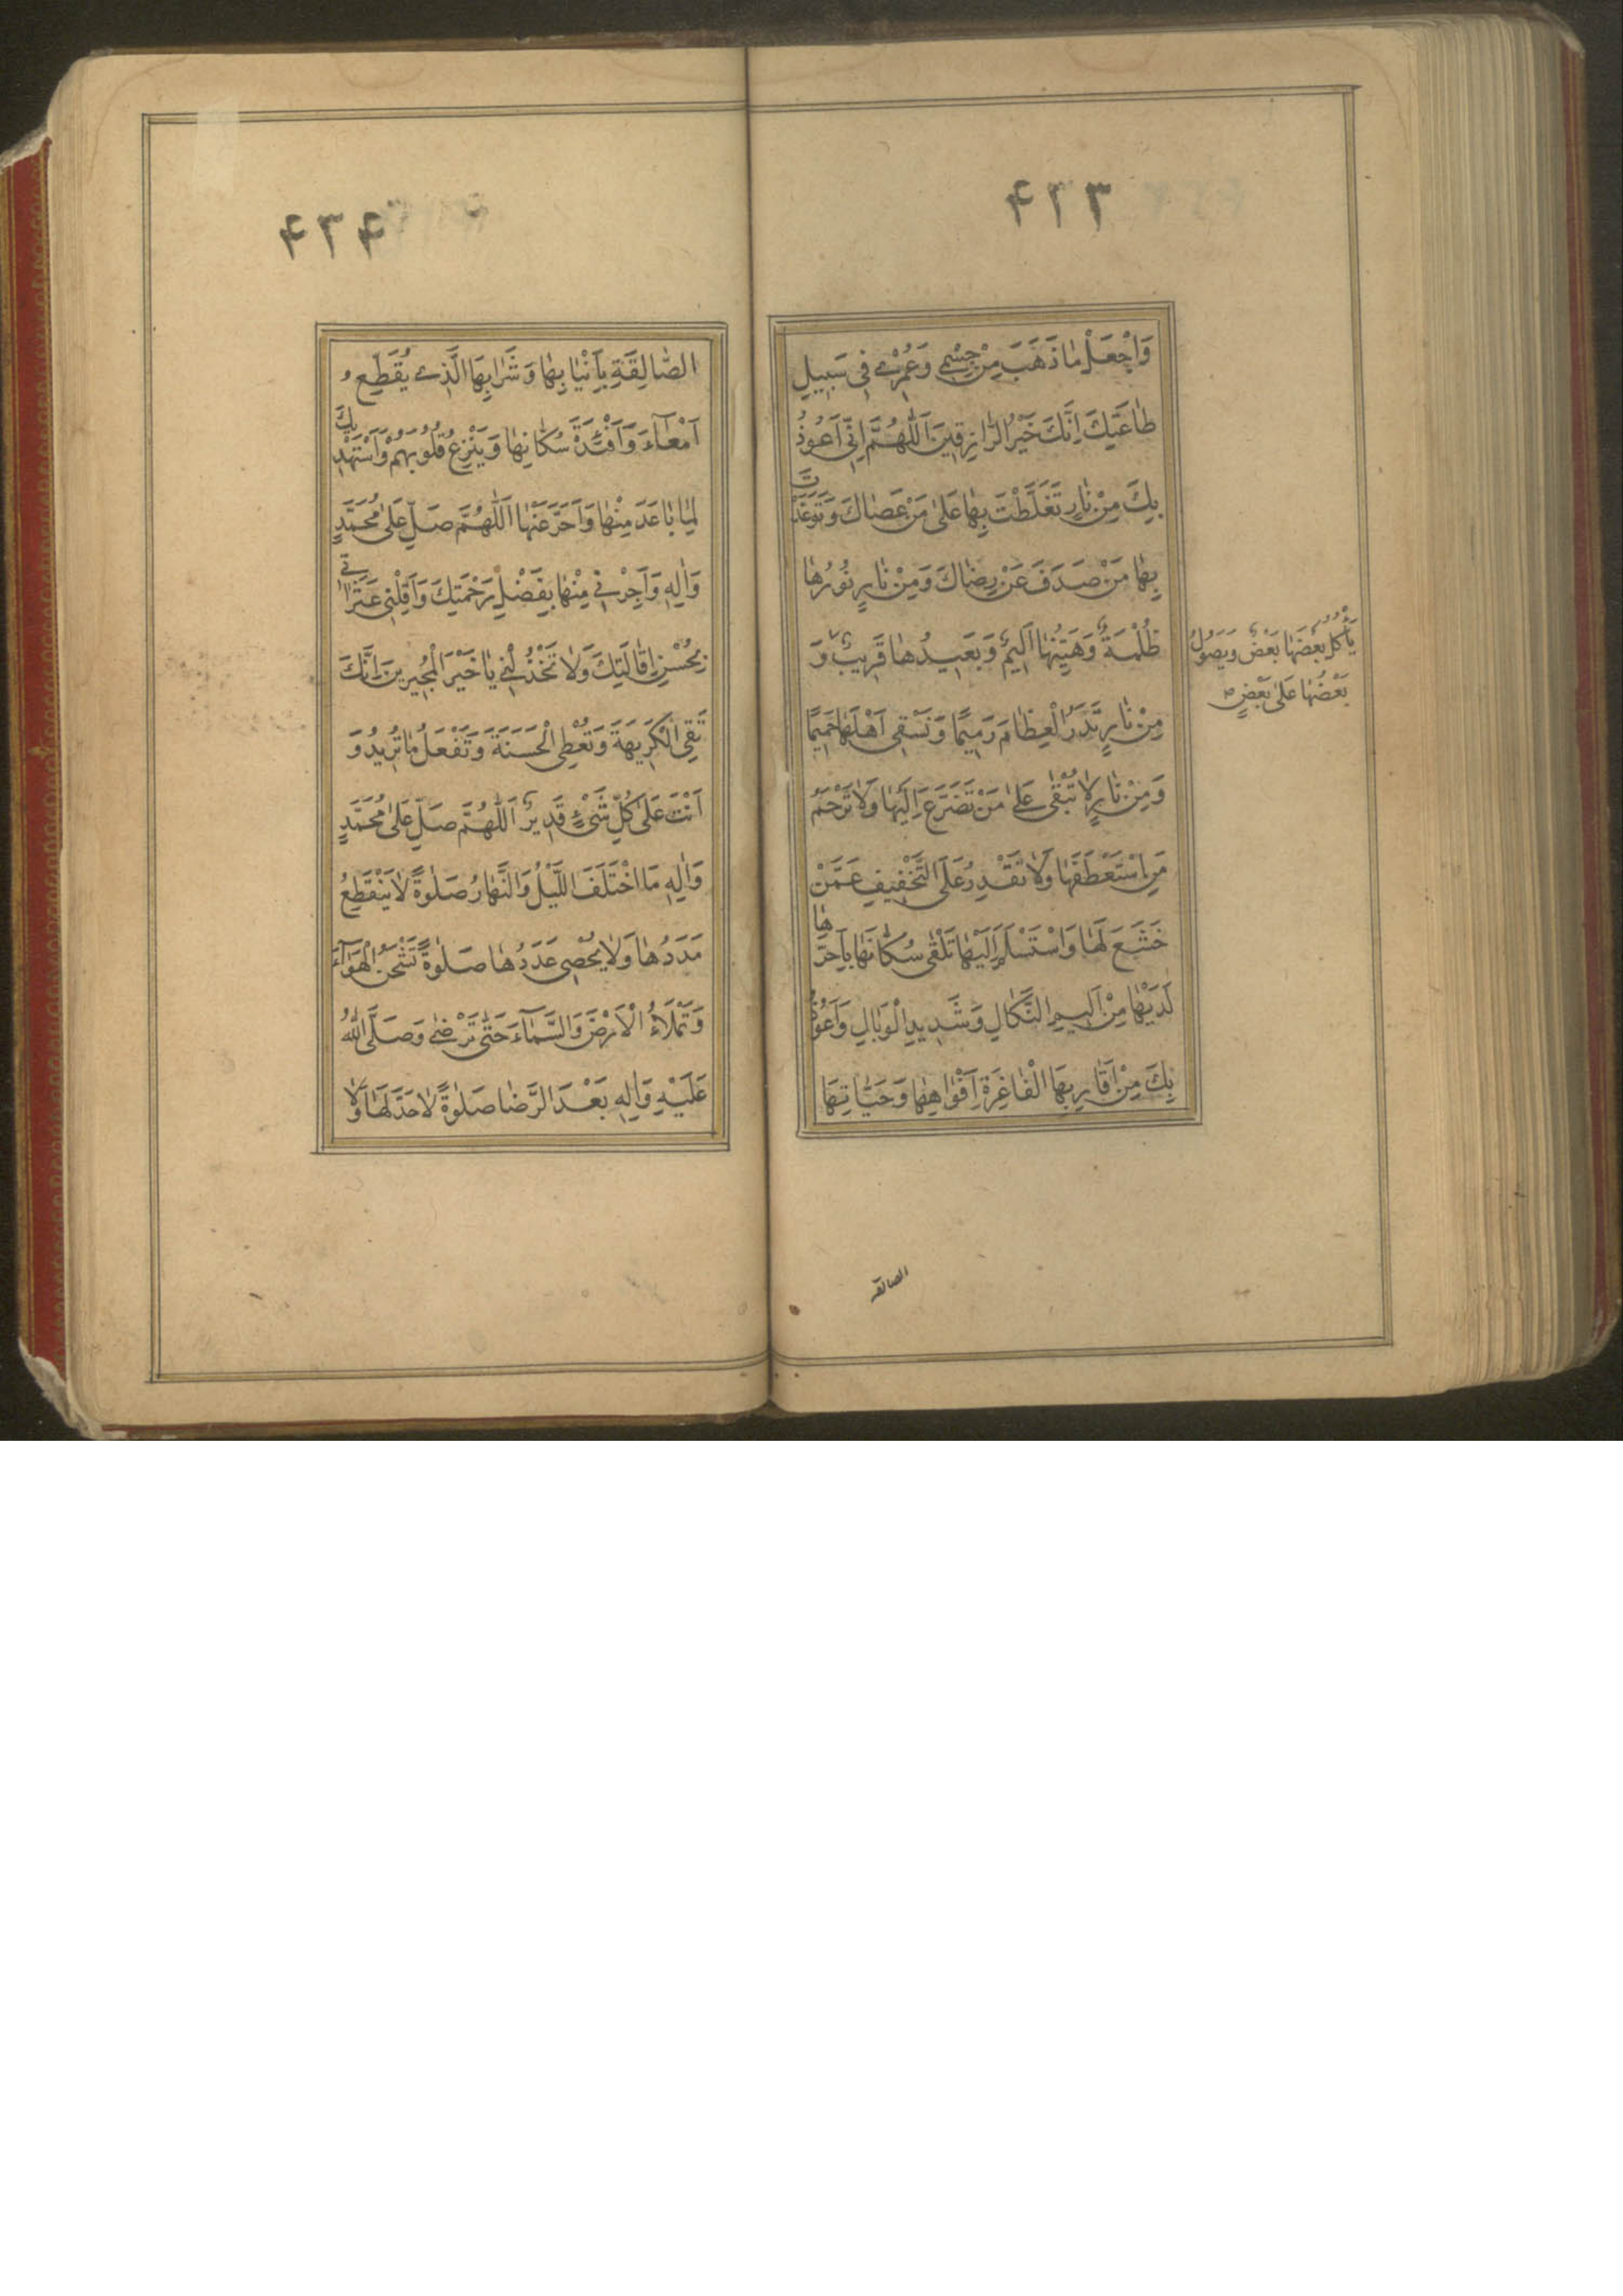 ۴۳۳
وَاجْعَلْ مٰا ذَهَبَ مِنْ جِسْمِى وَعُمْرِى فِى سَبِيلِ
طٰاعَتِكَ اِنَّكَ خَيْرُ الرّٰازِقِينَ اَللّٰهُمَّ اِنِّى اَعُوذُ
بِكَ مِنْ نٰارٍ تَغَلَّظْتَ بِهٰا عَلىٰ مَنْ عَصٰاكَ وَتَوَعَّدْتَ
بِهٰا مَنْ صَدَفَ عَنْ رِضٰاكَ وَمِنْ نٰارٍ نُورُهٰا
ظُلْمَةٌ وَهَيِّنُهٰا اَلِيمٌ وَبَعِيدُهٰا قَرِيبٌ وَ
يَأْكُلُ بَعْضَهٰا بَعْضٌ وَيَصُولُ
بَعْضُهٰا عَلىٰ بَعْضٍ
مِنْ نٰارٍ تَذَرُ الْعِظٰامَ رَمِيمًا وَتَسْقِى اَهْلَهٰا حَمِيمًا
وَمِنْ نٰارٍ لٰا تُبْقِى عَلىٰ مَنْ تَضَرَّعَ اِلَيْهٰا وَلٰا تَرْحَمُ
مَنِ اسْتَعْطَفَهٰا وَلٰا تَقْدِرُ عَلَى التَّخْفِيفِ عَمَّنْ
خَشَعَ لَهٰا وَاسْتَسْلَمَ اِلَيْهٰا تَلْقٰى سُكّٰانَهٰا بِاَحَرِّ
هٰا
لَدَيْهٰا مِنْ اَلِيمِ النَّكٰالِ وَشَدِيدِ الْوَبٰالِ وَاَعُوذُ
بِكَ مِنْ عَقٰارِبِهَا الْفٰاغِرَةِ اَفْوٰاهِهٰا وَحَيّٰاتِهَا
الصالقة
۴۳۴
الصّٰالِقَةِ بِاَنْيٰابِهٰا وَشَرٰابِهَا الَّذِى يُقَطِّعُ
اَمْعٰآءَ وَاَفْئِدَةَ سُكّٰانِهٰا وَيَنْزِعُ قُلُوبَهُمْ وَاَسْتَهْدِيكَ
لِمٰا بٰاعَدَ مِنْهٰا وَاَخَّرَ عَنْهٰا اَللّٰهُمَّ صَلِّ عَلىٰ مُحَمَّدٍ
وَاٰلِهِ وَاَجِرْنِى مِنْهٰا بِفَضْلِ رَحْمَتِكَ وَاَقِلْنِى عَثَرٰاتِى
بِحُسْنِ اِقٰالَتِكَ وَلٰا تَخْذُلْنِى يٰا خَيْرَ الْمُجِيرِينَ اِنَّكَ
تَقِى الْكَرِيهَةَ وَتُعْطِى الْحَسَنَةَ وَتَفْعَلُ مٰا تُرِيدُ وَ
اَنْتَ عَلىٰ كُلِّ شَىْءٍ قَدِيرٌ اَللّٰهُمَّ صَلِّ عَلىٰ مُحَمَّدٍ
وَاٰلِهِ مَا اخْتَلَفَ اللَّيْلُ وَالنَّهٰارُ صَلٰوةً لٰا يَنْقَطِعُ
مَدَدُهٰا وَلٰا يُحْصٰى عَدَدُهٰا صَلٰوةً تَشْحَنُ الْهَوٰآءَ
وَتَمْلَأُ الْاَرْضَ وَالسَّمٰآءَ حَتّٰى تَرْضٰى وَصَلَّى اللّٰهُ
عَلَيْهِ وَاٰلِهِ بَعْدَ الرِّضٰا صَلٰوةً لٰا حَدَّ لَهٰا وَلٰا